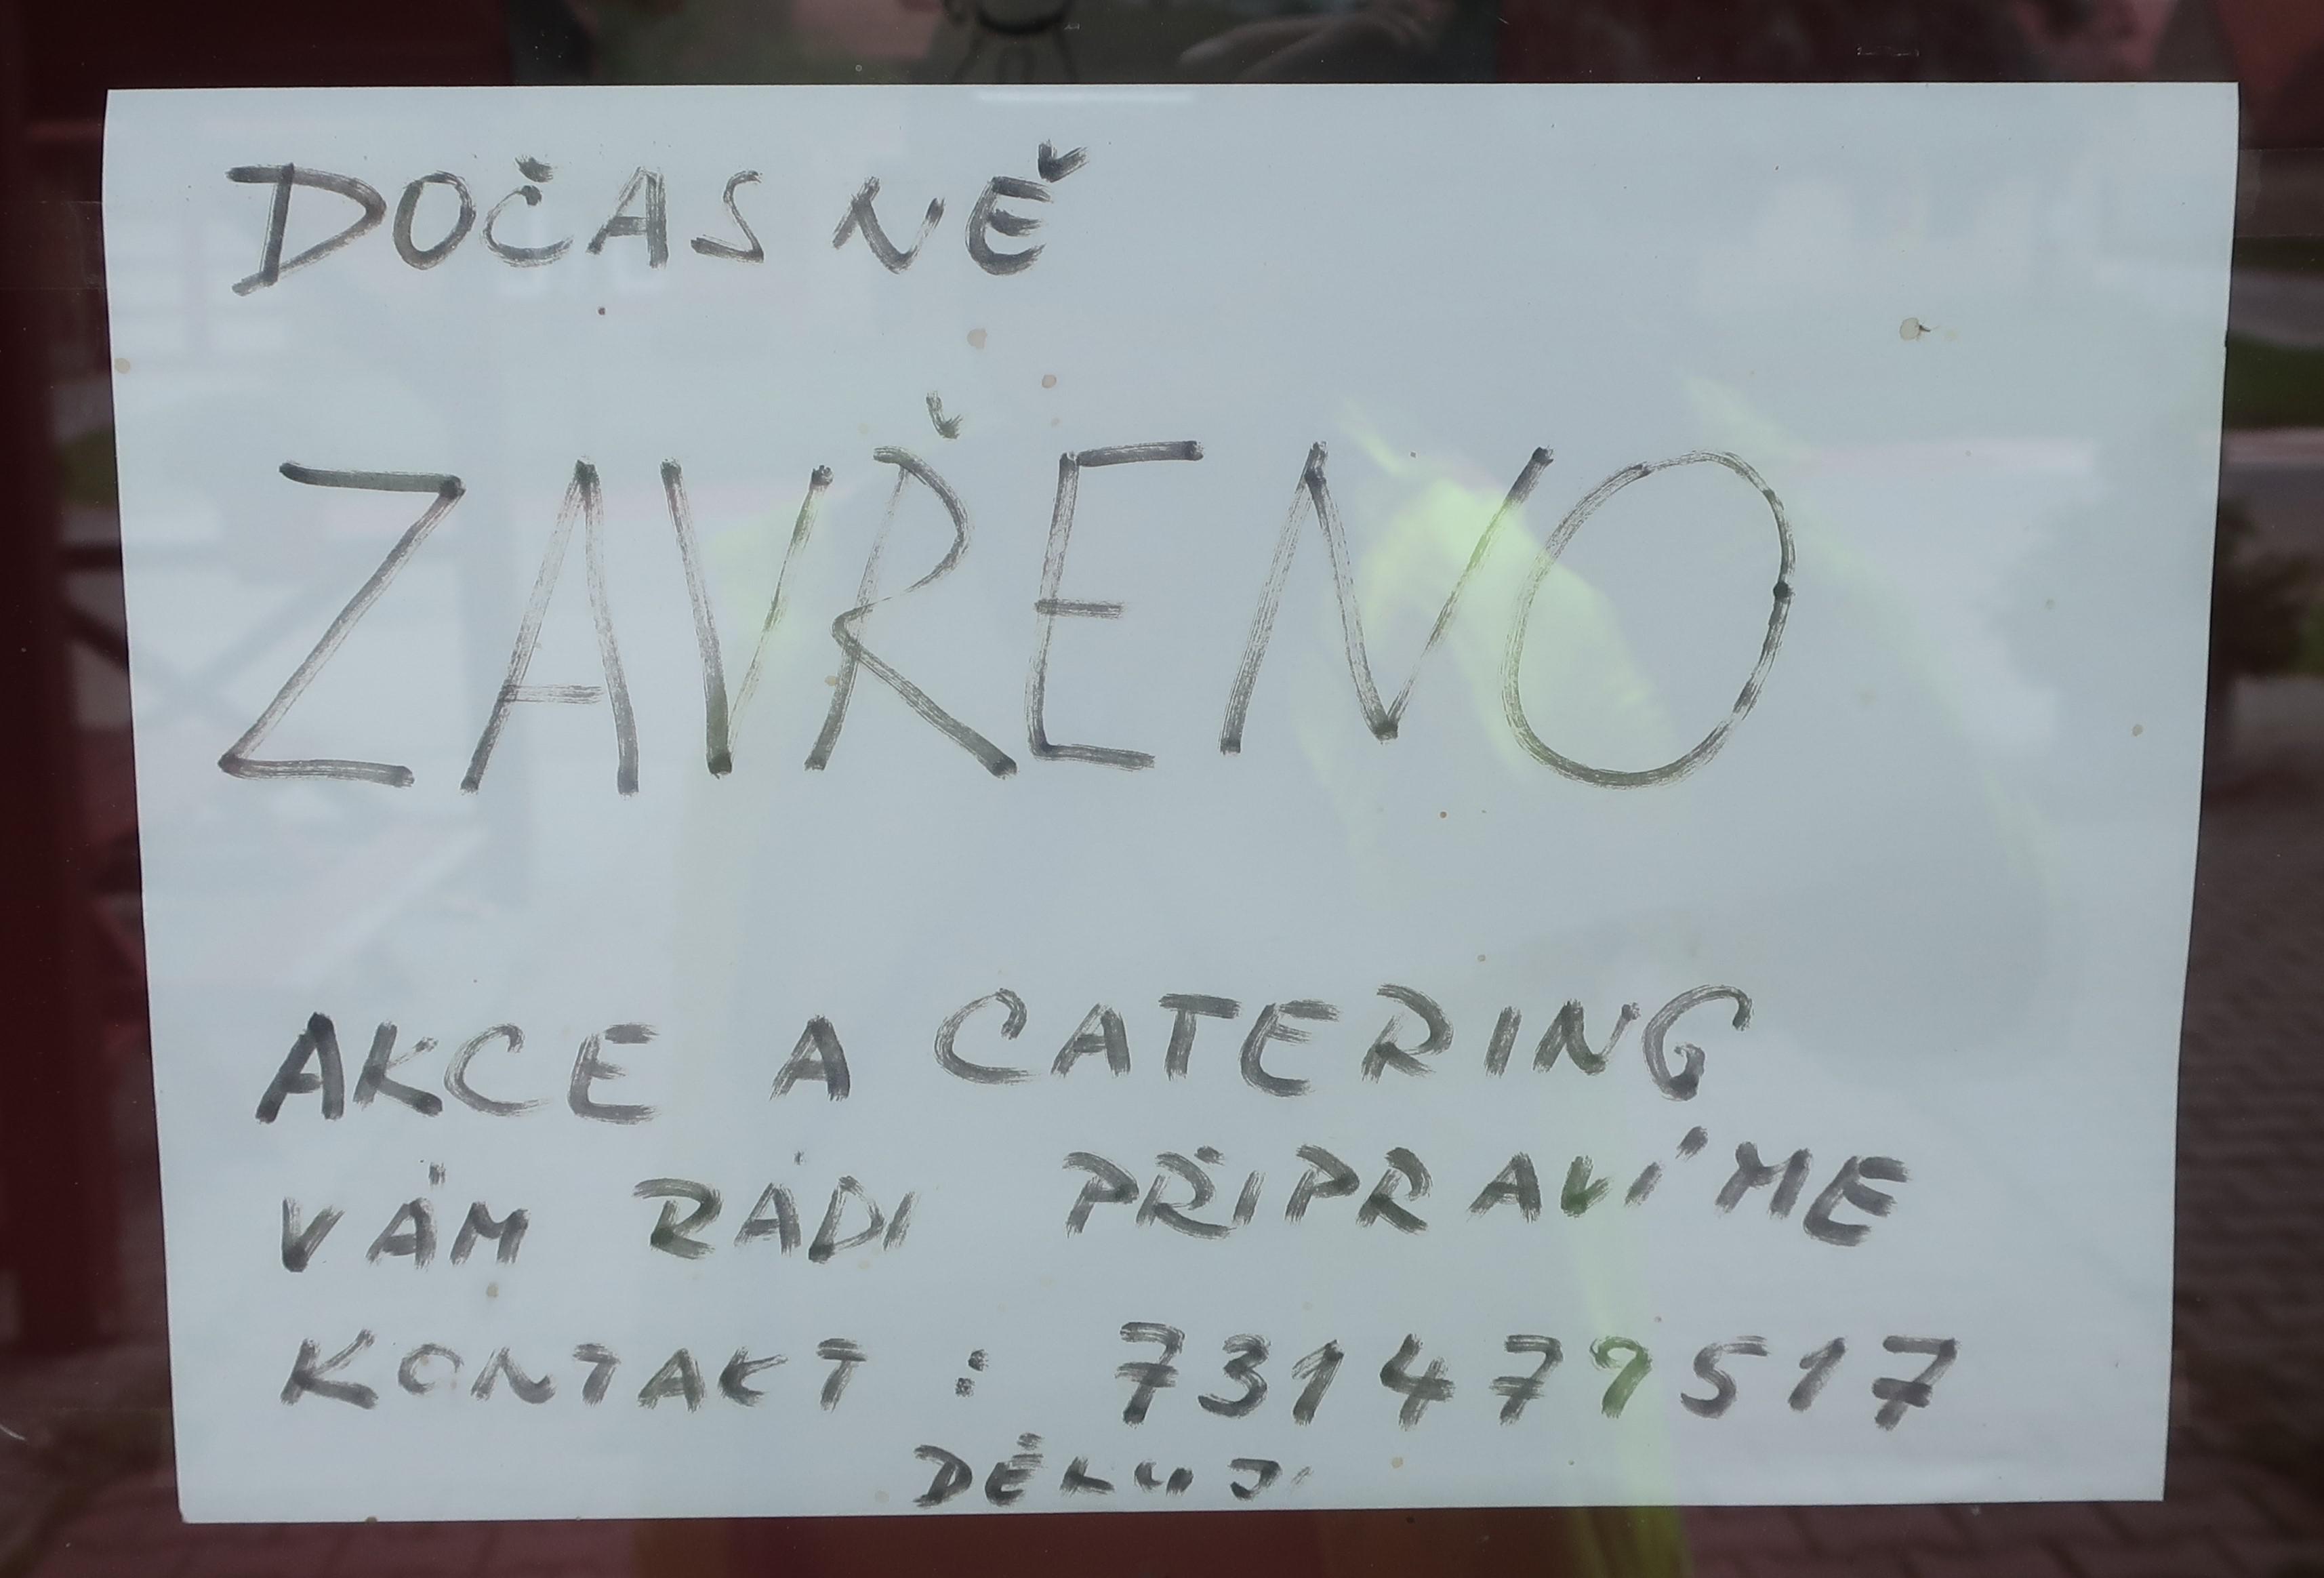 DOČASNĚ
ZAVŘENO
AKCE A CATERING
VÁM RÁDI PŘIPRAVÍME
KONTAKT : 731479517
DĚKUJI